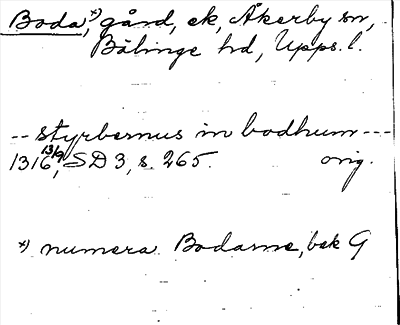 Boda,*) gård, ek, Åkerby sn,
Bälinge hd, Upps. l.
-- styrbernus in bodhum ---
1316 13/9, SD 3, s. 265. orig.
*) numera Bodarne, bek G